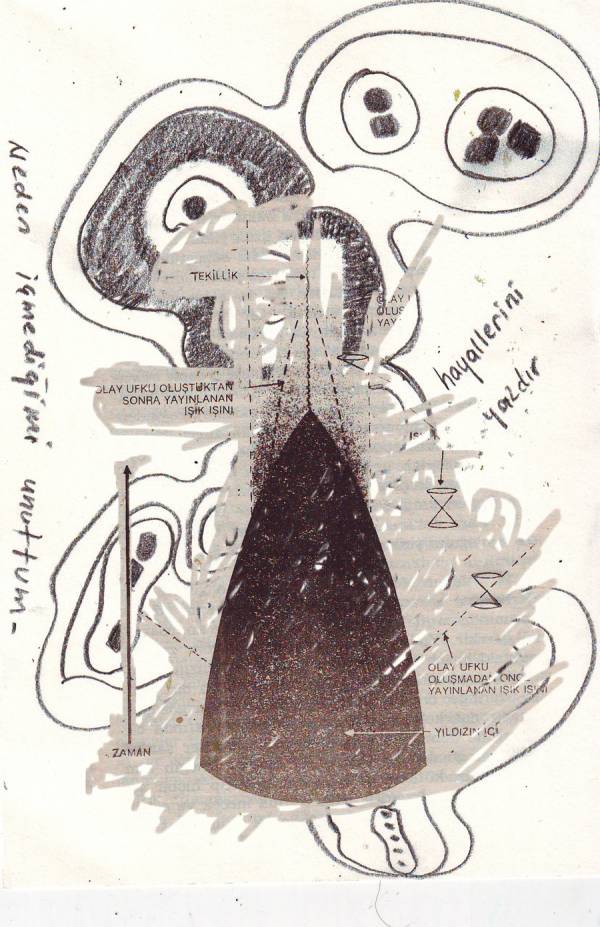 Neden içmediğimi unuttum-
TEKİLLİK
OLUŞ
YAY
hayallerini
yazdır
OLAY UFKU OLUŞTUKTAN
SONRA YAYINLANAN
IŞIK IŞINI
OLAY UFKU
OLUŞMADAN ÖNCE
YAYINLANAN IŞIK IŞINI
YILDIZIN İÇİ
ZAMAN